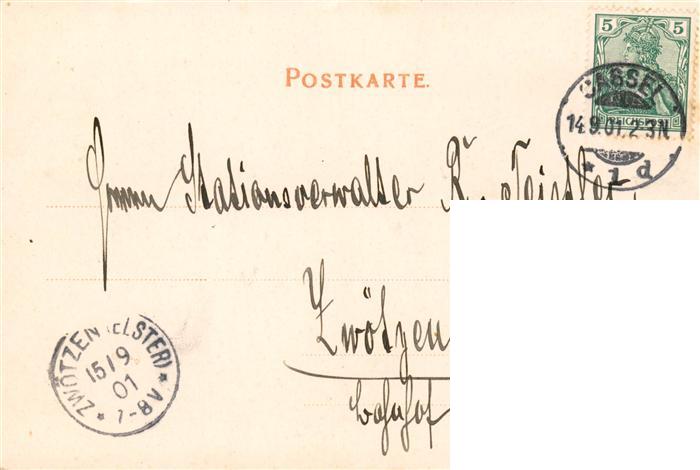 5 5
REICHSPOST
CASSEL
14.9.01.2-3N.
* 1 d
POSTKARTE.
Herrn Stationsverwalter R.
Zwötzen
Bahnhof
ZWÖTZEN (ELSTER)
15/9
01
* 7-8V. *